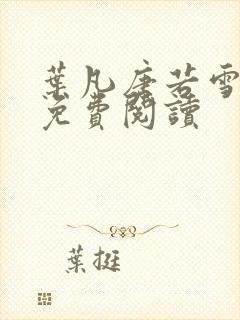 葉凡唐若雪
免費閱讀
葉挺